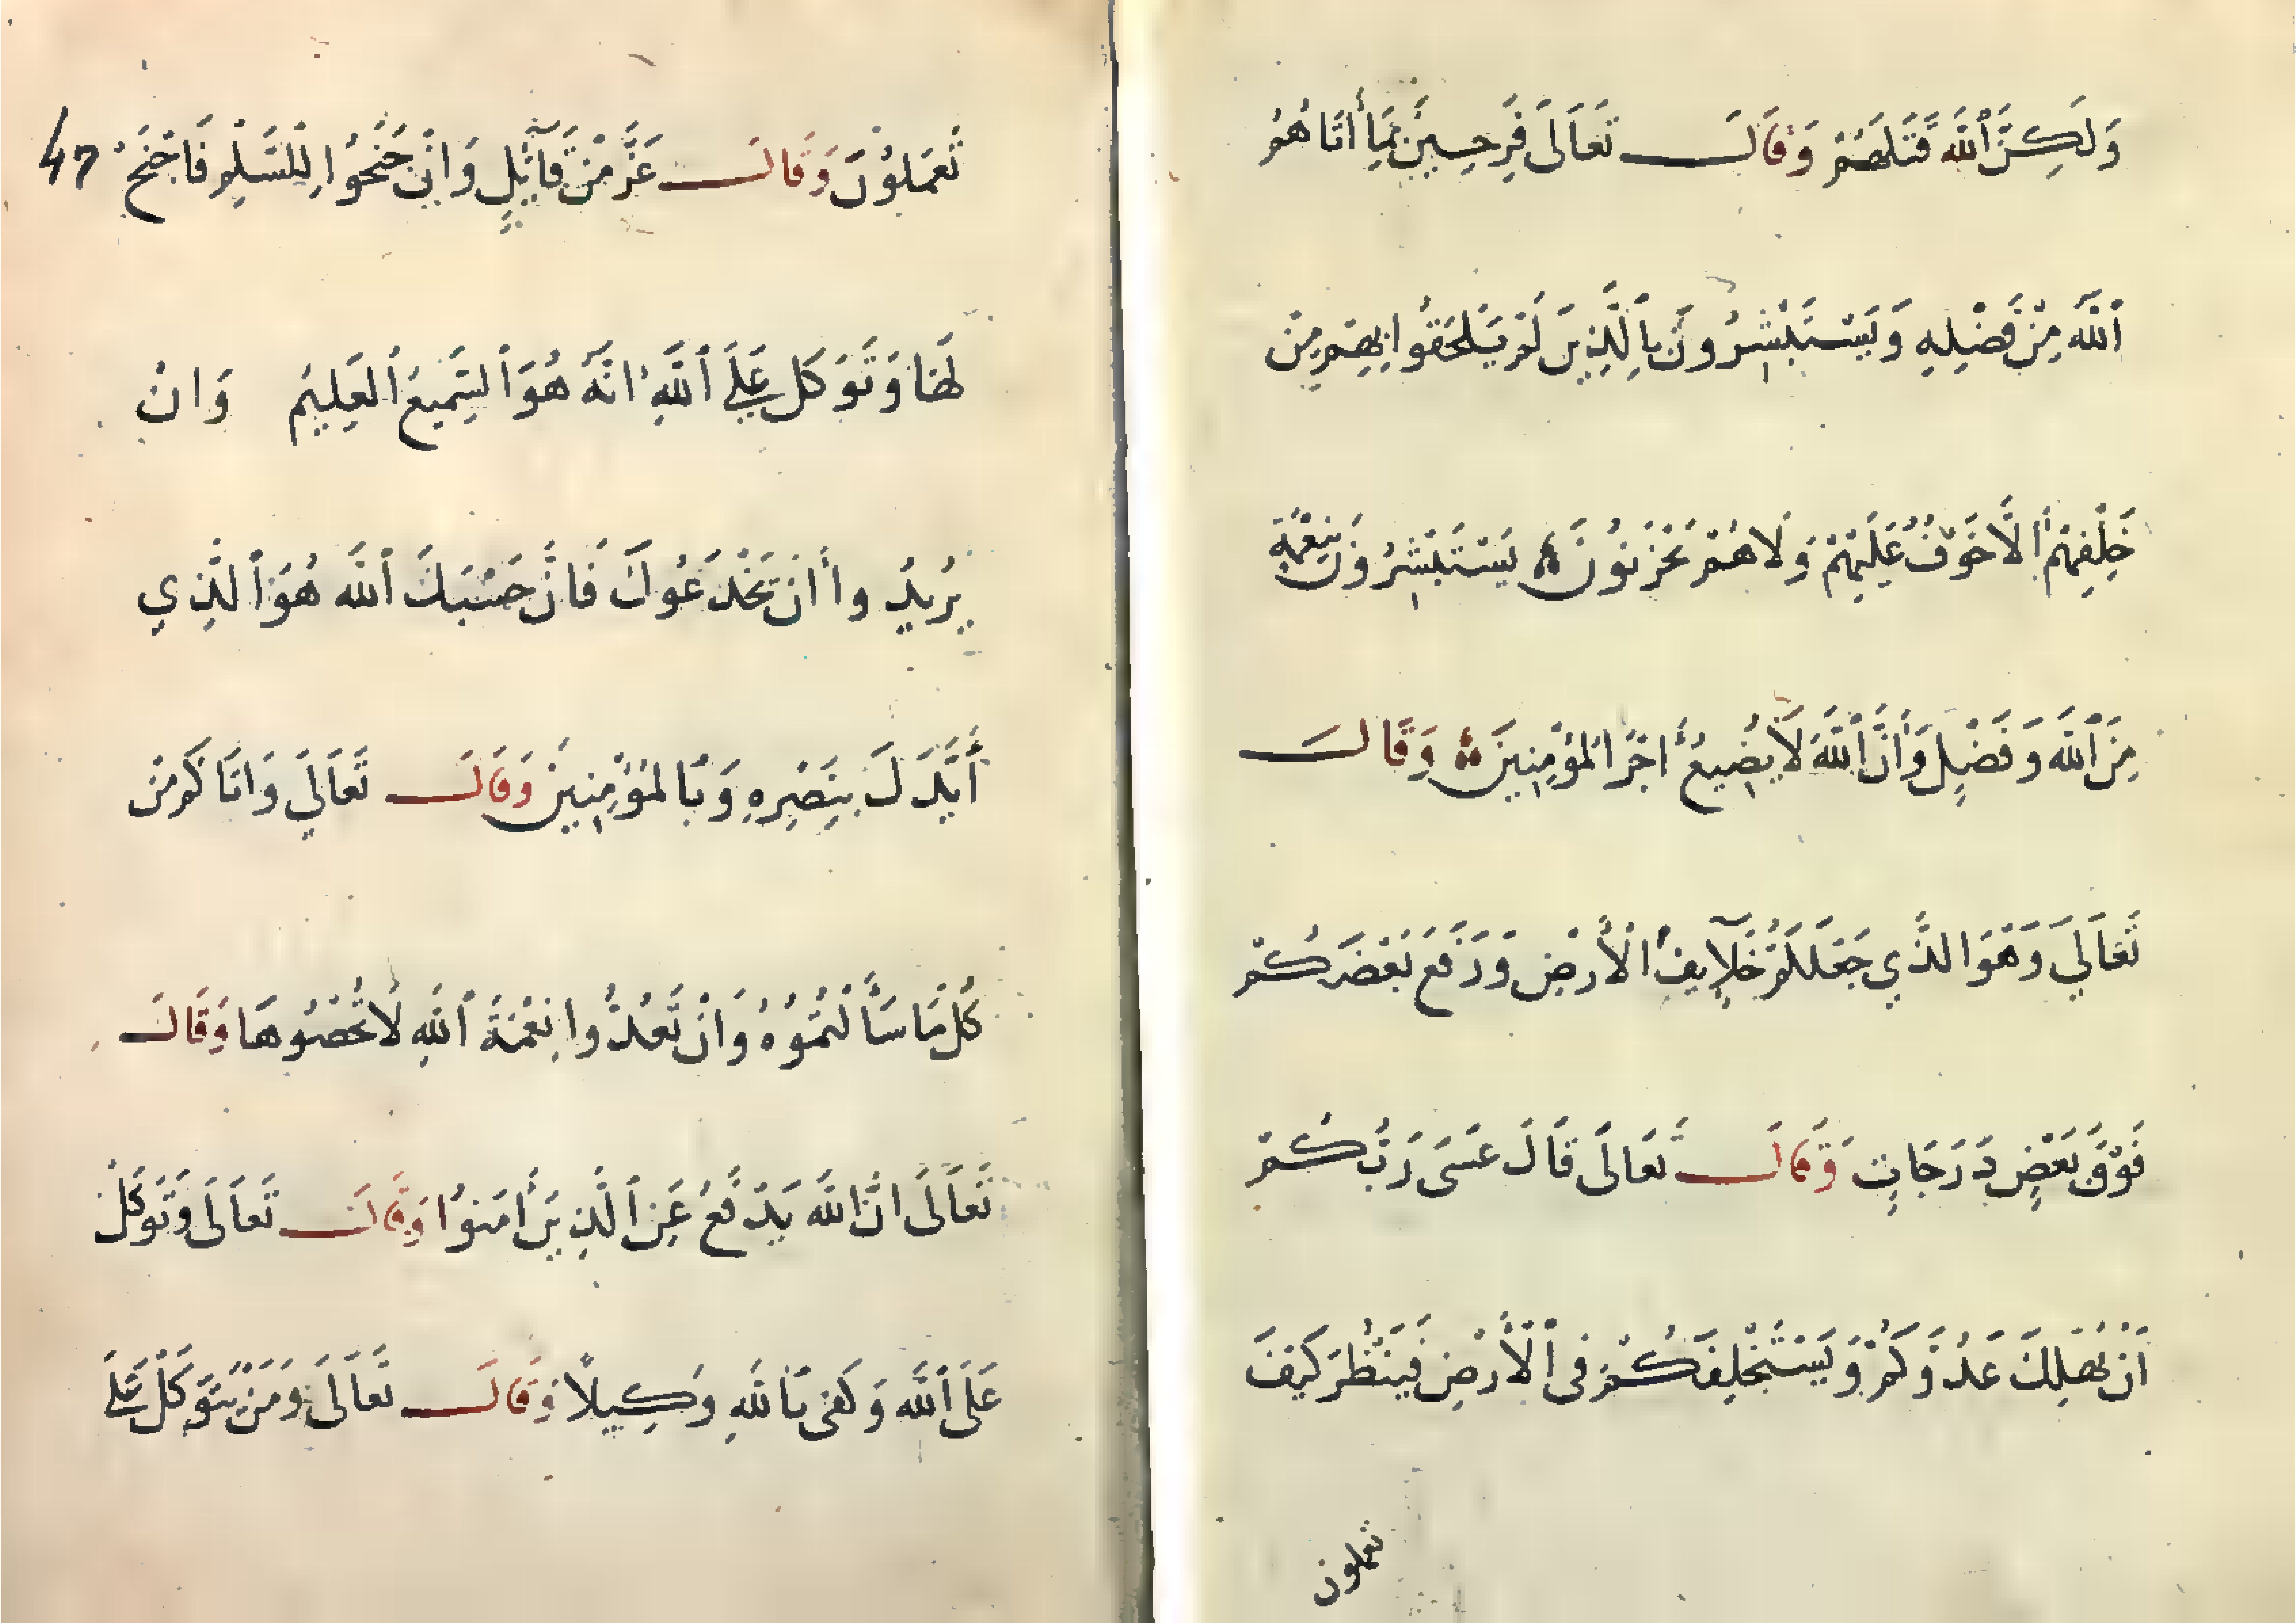 وَلَكِنَّ ٱللَّهَ قَتَلَهُمْ وَقَالَ تَعَالَى فَرِحِينَ بِمَا أَتَاهُمُ
ٱللَّه مِنْ فَضْلِهِ وَيَسْتَبْشِرُونَ بِالَّذِينَ لَمْ يَلْحَقُوا بِهِمْ مِنْ
خَلْفِهِمْ أَلَّا خَوْفٌ عَلَيْهِمْ وَلَا هُمْ يَحْزَنُونَ يَسْتَبْشِرُونَ بِنِعْمَةٍ
مِنَ ٱللَّه وَفَضْلٍ وَأَنَّ ٱللَّهَ لَا يُضِيعُ أَجْرَ المُؤْمِنِينَ وَقَالَ
تَعَالَي وَهُوَ الَّذِي جَعَلَكُمْ خَلَآيِفَ الْأَرْضِ وَرَفَعَ بَعْضَكُمْ
فَوْقَ بَعْضٍ دَرَجَاتٍ وَقَالَ تَعَالَى قَالَ عَسَى رَبُّكُمْ
أَنْ يُهْلِكَ عَدُوَّكُمْ وَيَسْتَخْلِفَكُمْ فِى ٱلْأَرْضِ فَيَنْظُرَ كَيْفَ
تعملون
تَعْمَلُونَ وَقَالَ عَزَّ مِنْ قَآئِلٍ وَانْ جَنَحُوا لِلسَّلْمِ فَاجْنَحْ 47
لَهَا وَتَوَكَّل عَلَي ٱللَّهِ انَّهُ هُوَ ٱلسَّمِيعُ ٱلْعَلِيمُ وَانْ
يُرِيدُوا أَنْ يَخْدَعُوكَ فَانَّ حَسْبَكَ ٱللَّه هُوَ ٱلَّذِي
أَيَّدَكَ بِنَصْرِهِ وَبِالمُؤْمِنِينَ وَقَالَ تَعَالَي وَاتَاكُمْ مِنْ
كُلِّ مَا سَأَلْتُمُوهُ وَانْ تَعُدُّوا نِعْمَةَ ٱللَّهِ لَا تُحْصُوهَا وَقَالَ
تَعَالَى انَّ اللَّه يَدْفَعُ عَنِ ٱلَّذِينَ أَمَنُوا وَقَالَ تَعَالَى وَتَوَكَّلْ
عَلَى ٱللَّه وَكَفَى بِاللَّهِ وَكِيلًا وَقَالَ تَعَالَى وَمَنْ يَتَوَكَّلْ عَلَي